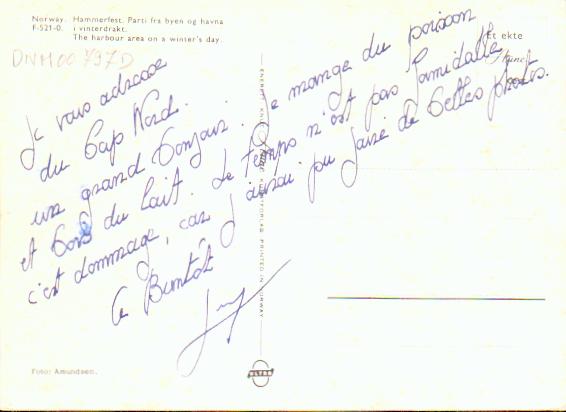 Norway. Hammerfest. Parti fra byen og havna
F-521-0. i vinterdrakt.
The harbour area on a winter's day.
DNM00797D
Et ekte
Je vous adresse
du Cap Nord.
un grand bonjour. Je mange du poisson
et bois du lait. Le temps n'est pas formidable
c'est dommage, car j'aurai pu faire de belles photos.
A Bientôt
Foto: Amundsen.
PRINTED IN NORWAY